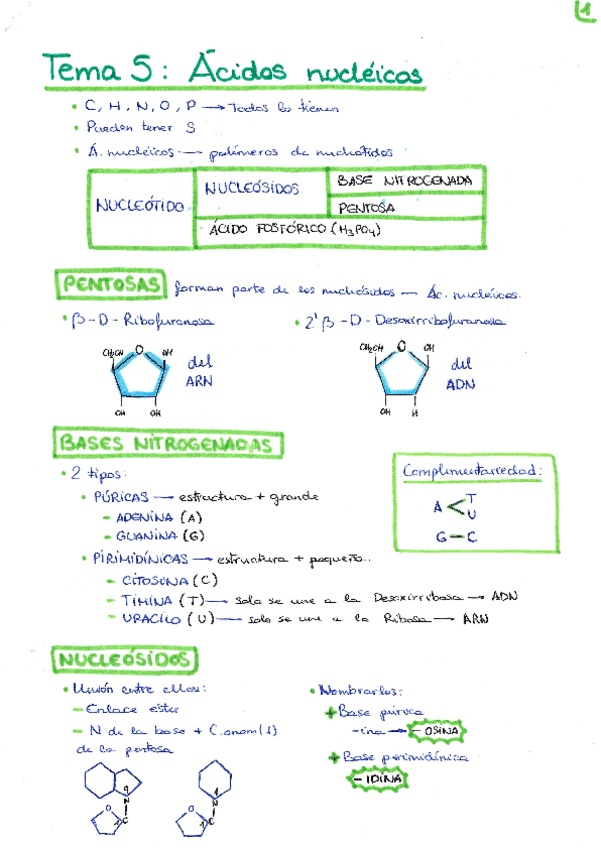 1
Tema 5: Ácidos nucléicos
• C, H, N, O, P → Todos lo tienen
• Pueden tener S
• Á. nucléicos — polímeros de nucleótidos
NUCLEÓTIDO
NUCLEÓSIDOS
BASE NITROGENADA
PENTOSA
ÁCIDO FOSFÓRICO (H3PO4)
PENTOSAS forman parte de los nucleósidos — Ác. nucléicos.
• β-D-Ribofuranosa
• 2' β-D-Desoxirribofuranosa
CH2OH O OH
OH OH
del
ARN
CH2OH O OH
OH H
del
ADN
BASES NITROGENADAS
• 2 tipos:
• PÚRICAS → estructura + grande
- ADENINA (A)
- GUANINA (G)
• PIRIMIDÍNICAS → estructura + pequeña..
- CITOSINA (C)
- TIMINA (T) → solo se une a la Desoxirribosa → ADN
- URACILO (U) → solo se une a la Ribosa → ARN
Complementariedad:
A < T
U
G — C
NUCLEÓSIDOS
• Unión entre ellos:
- Enlace éster
- N de la base + C.anom(1)
de la pentosa
9
N
O
1 C
1
N
O
1 C
• Nombrarlos:
+ Base púrica
-ina → - OSINA
+ Base pirimidínica
- IDINA